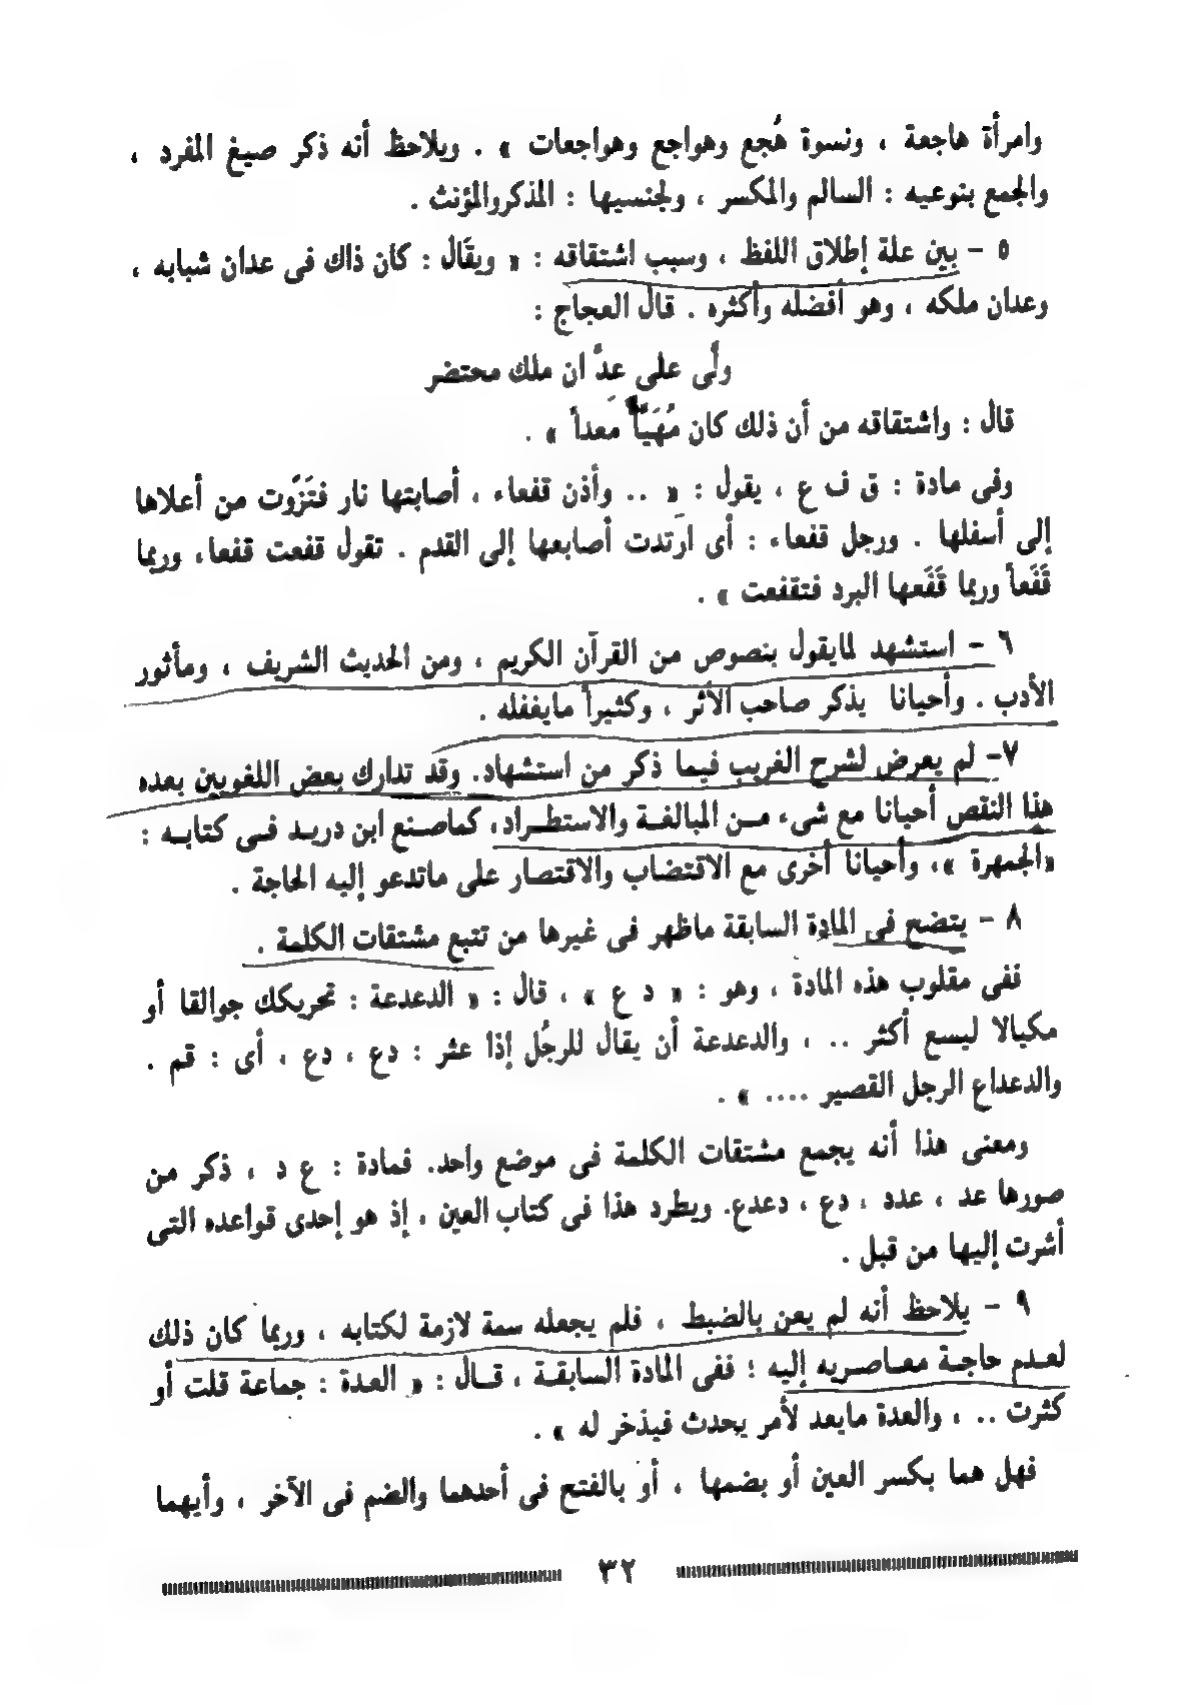 وامرأة هاجعة ، ونسوة هُجع وهواجع وهواجعات » . ويلاحظ أنه ذكر صيغ المفرد ،
والجمع بنوعيه : السالم والمكسر ، ولجنسيها : المذكروالمؤنث .
٥ – بين علة إطلاق اللفظ ، وسبب اشتقاقه : « ويقَال : كان ذاك فى عدان شبابه ،
وعدان ملكه ، وهو أفضله وأكثره . قال العجاج :
ولَّى على عدَّ ان ملك محتضر
قال : واشتقاقه من أن ذلك كان مُهَيّأً معداً » .
وفى مادة : ق ف ع ، يقول : « .. وأذن قفعاء ، أصابتها نار فتَزَوت من أعلاها
إلى أسفلها . ورجل قفعاء : أى ارتدت أصابعها إلى القدم . تقول قفعت قفعاء، وربما
قَفَعاً وربما قَفَعها البرد فتقفعت » .
٦ – استشهد لمايقول بنصوص من القرآن الكريم ، ومن الحديث الشريف ، ومأثور
الأدب . وأحيانا يذكر صاحب الأثر ، وكثيراً مايغفله .
٧– لم يعرض لشرح الغريب فيما ذكر من استشهاد. وقد تدارك بعض اللغويين بعده
هذا النقص أحيانا مع شىء مـن المبالغـة والاستطـراد، كماصـنع ابن دريـد فـى كتابـه :
«الجمهرة »، وأحيانا أخرى مع الاقتضاب والاقتصار على ماتدعو إليه الحاجة .
٨ – يتضح فى المادة السابقة ماظهر فى غيرها من تتبع مشتقات الكلمة .
ففى مقلوب هذه المادة ، وهو : « د ع » ، قال : « الدعدعة : تحريكك جوالقا أو
مكيالا ليسع أكثر .. ، والدعدعة أن يقال للرجُل إذا عثر : دع ، دع ، أى : قم .
والدعداع الرجل القصير .... » .
ومعنى هذا أنه يجمع مشتقات الكلمة فى موضع واحد. فمادة : ع د ، ذكر من
صورها عد ، عدد ، دع ، دعدع. ويطرد هذا فى كتاب العين ، إذ هو إحدى قواعده التى
أشرت إليها من قبل .
٩ – يلاحظ أنه لم يعن بالضبط ، فلم يجعله سمة لازمة لكتابه ، وربما كان ذلك
لعـدم حاجـة معـاصـريه إليه ؛ ففى المادة السابقـة ، قـال : « العدة : جماعة قلت أو
كثرت .. ، والعدة مايعد لأمر يحدث فيذخر له » .
فهل هما بكسر العين أو بضمها ، أو بالفتح فى أحدهما والضم فى الآخر ، وأيهما
٣٢